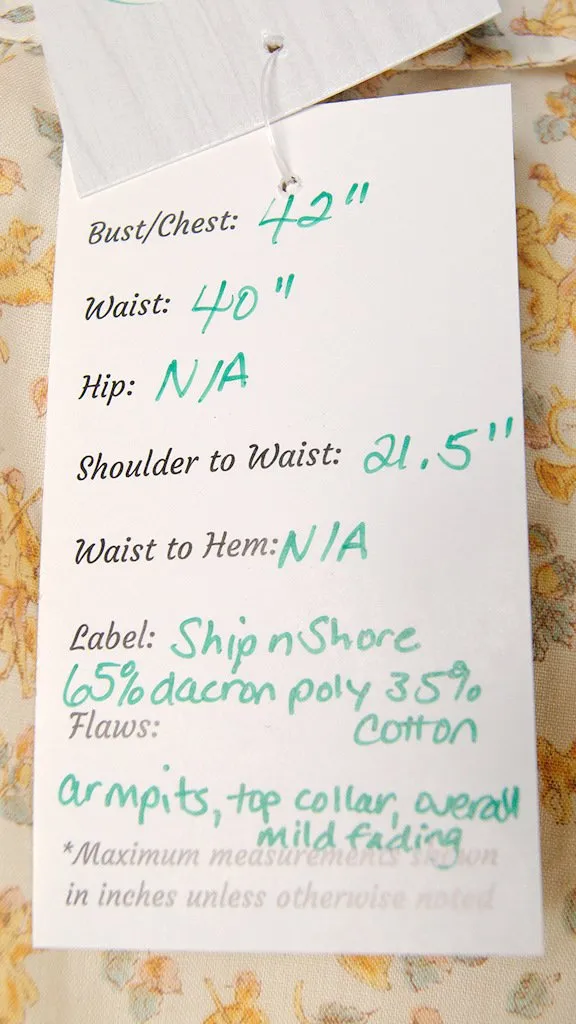 Bust/Chest: 42"
Waist: 40"
Hip: N/A
Shoulder to Waist: 21.5"
Waist to Hem: N/A
Label: Ship n Shore
65% dacron poly 35%
Flaws: cotton
armpits, top collar, overall
mild fading
*Maximum measurements shown
in inches unless otherwise noted